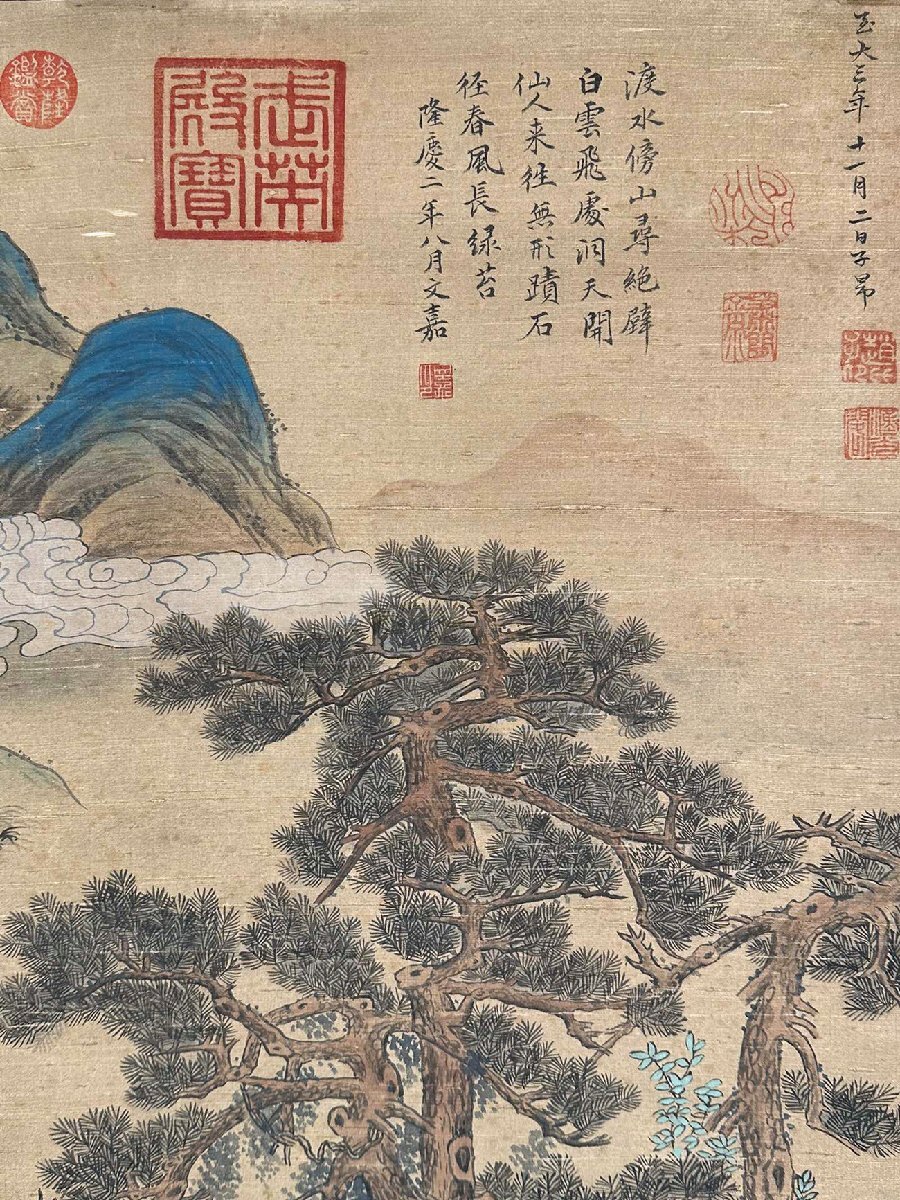 至大三年十一月二日子昂
渡水傍山尋絶壁
白雲飛處洞天開
仙人来往無形蹟石
径春風長緑苔
隆慶二年八月文嘉
武英
殿寶
乾隆
鑑賞